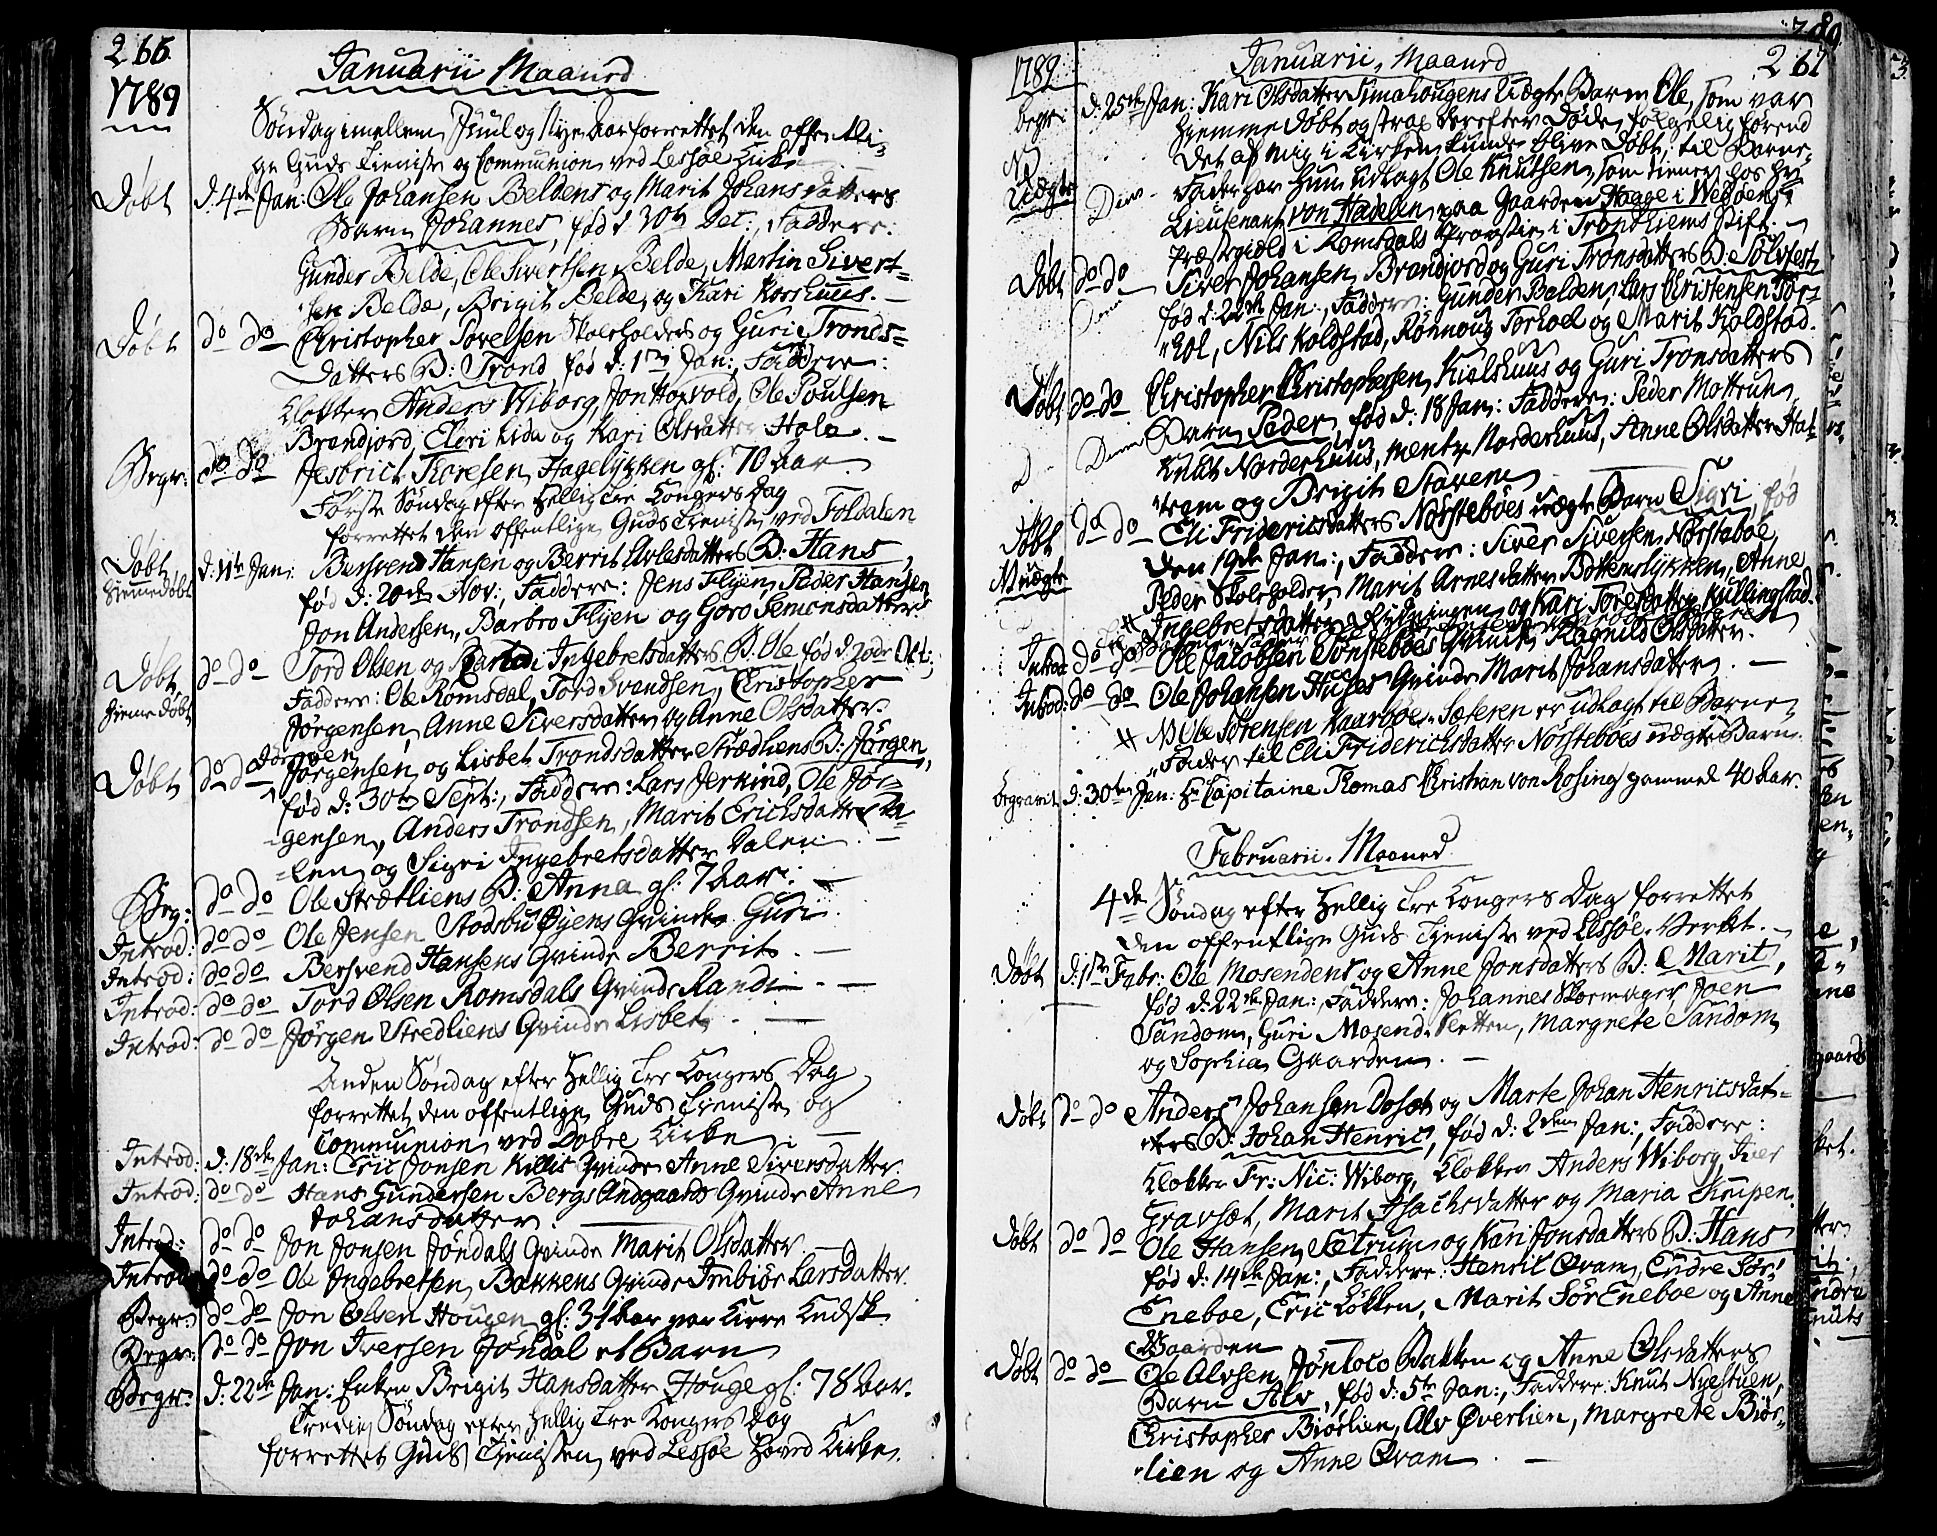 266
1789
Januarii Maaned
Søndag imellem Juul og Nye Aar forrettet den offentli-
ge Guds Tieniste og Communion ved Lessøe Kirke
Døbt d: 4de Jan: Ole Johansen Beldens og Marit Johansdatters
Barn Johannes, fød d. 30te Dec:, Faddere:
Gunder Belde, Ole Sivertsen Belde, Martin Sivert-
sen Belde, Brigit Belde og Kari Korshuus. —
Døbt do do Christopher Skoleholders og Guri Tronds-
datters B: Trond fød d: 1te Jan:, Faddere:
Klokker Anders Wiborg, Jon Horvold, Ole Poulsen
Brandjord, Eleri Lida og Kari Olsdatter Hole. —
Begr: do do Jestrich Thoresen Hagelykken gl: 70 Aar.
Første Søndag efter Hellig Tre Kongers Dag
forrettet den offentlige Guds Tieniste ved Foldalen
Døbt d: 11te Jan: Bersvend Hansen og Berrit B: Hans
Hiemedøbt fød d: 20de Nov:, Faddere: Jens Flyen, Peder Hansen
Jon Andersen, Barbro Flyen og Goro Semonsdatter
Døbt do do Tord Olsen og Randi Ingebretsdatters B. Ole fød d. 20de Oct:,
Hiemedøbt Faddere: Ole Romsdal, Tord Svendsen, Christopher
Jørgensen, Anne Siversdatter og Anne Olsdatter.
Jørgen
Døbt do do Jørgensen og Lisbet Trondsdatter Strædliens B: Jørgen,
fød d: 30te Sept:, Faddere: Lars Jerkind, Ole Jør-
gensen, Anders Trondsen, Marit Erichsdatter Da-
len og Sigri Ingebretsdatter Dalen —
Begr: do do Ole Strætliens B: Anna gl: 7 Aar. —
Introd: do do Ole Jensen Stodsbuøyens Qvinde Guri
Introd: do do Bersvend Hansens Qvinde Berrit. —
Introd: do do Tord Olsen Romsdals Qvinde Randi. —
Introd: do do Jørgen Stredliens Qvinde Lisbet. —
Anden Søndag efter Hellig Tre Kongers Dag
forrettet den offentlige Guds Tieniste og
Communion ved Dovre Kirke —
Introd: d: 18de Jan: Eric Jonsen Killis Qvinde Anne Siversdatter.
Introd: do do Hans Gundersen Bergs Andgaards Qvinde Anne
Johansdatter.
Introd: do do Jon Jonsen Jøndals Qvinde Marit Olsdatter
Introd do do Ole Ingebretsen Bakkens Qvinde Imbiør Larsdatter.
Begr: do do Jon Olsen Hougen gl: 31 Aar
Begr: do do Jon Iversen Jøndal et Barn
Begr: d: 22de Jan: Enken Brigit Hansdatter Houge gl: 78 Aar.
Tredie Søndag efter Hellig Tre Kongers Dag
forrettet Guds Tienisten ved Lessøe Hoved Kirke.
1789
Januarii Maaned
267
Begr: d: 25de Jan: Kari Olsdatter Simahougens Uægte Barn Ole, som var
NB hiemme døbt og strax derefter døde, følgelig førend
Uægte det af mig i Kirken kunde blive døbt; til Barne-
Fader har hun udlagt Ole Knutsen, som tiener hos Hr
Lieutenant von Hadelen paa Gaarden Haage i Wedøens
Præstegield i Romsdals Provstie i Trondhiems Stift. —
Døbt do do Siver Johansen Brandjord og Guri Tronsdatters B: Sølvfest
fød d. 22de Jan:, Faddere: Gunder Belden, Lars Christensen Tor-
hol, Nils Koldstad, Rønnoug Torhol og Marit Koldstad.
Døbt do do Christopher Christophersen Kielshuus og Guri Tronsdatters
Barn Peder, fød d: 18 Jan: Faddere: Peder Mottrun
Knut Norderhuus, Norderhuus, Anne Olsdatter Hat-
trem og Brigit Staven
Døbt do do Eli Fridericsdatters Nørstebøes uægte Barn Sigri, fød
NB uægte den 19de Jan:, Faddere: Siver Siversen Nørsteboe,
Peder Skoleholder, Marit Arnesdatter Bottenslykken, Anne
Ingebretsdatter og Kari Toresdatter Kullingstad
Introd do do Ole Jacobsen Tønstebøes Qvinde Ragnild Olsdatter.
Introd: do do Ole Johansen Huses Qvinde Marit Johansdatter. —
NB Ole Sørensen Kaarbøe-Sæteren er udlagt til Barne-
Fader til Eli Friderichsdatter Nørstebøes uægte Barn.
Begravet d: 30te Jan: Hr Capitaine Thomas Christian von Rosing gammel 40 Aar.
Februarii Maaned
4de Søndag efter Hellig Tre Kongers Dag forrettet
den offentlige Guds Tieniste ved Lessøe-Verket. —
Døbt d: 1te Febr: Ole Mosendens og Anne Jonsdatters B: Marit,
fød d: 22de Jan:, Faddere: Johannes Skoemager Joen
Sandom, Guri Mosend- Sletten, Margrete Sandom
og Sophia Gaarden. —
Døbt do do Anders Johansen Dosæt og Marte Johan Henricsdat-
ters B: Johan Henric, fød d: 2den Jan:, Faddere:
Klokker Fr: Nic: Wiborg, Klokker Anders Wiborg, Iver
Gravset, Marit Isachsdatter og Maria Knipen
Døbt do do Ole Hansen Sætrum og Kari Jonsdatters B: Hans
fød d: 14de Jan:, Faddere: Henric Qvam, Endre Sør-
Eneboe, Eric Løkken, Marit SørEneboe og Anne
Gaarden
Døbt do do Ole Alvsen Jønloco Bakken og Anne Olsdatters
Barn Alv, fød d: 5te Jan:, Faddere: Knut Nyestuen,
Christopher Biørlien, Alv Øverlien, Margrete Biør-
lien og Anne Qvam. —